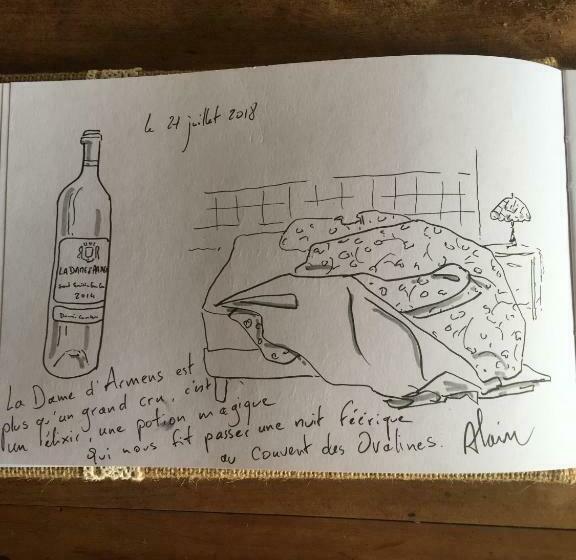 le 21 juillet 2018
LA DAME D'ARMENS
2014
La Dame d'Armens est
plus qu'un grand cru, c'est
un élixir, une potion magique
qui nous fit passer une nuit féérique
au Couvent des Ovalines.
Alain